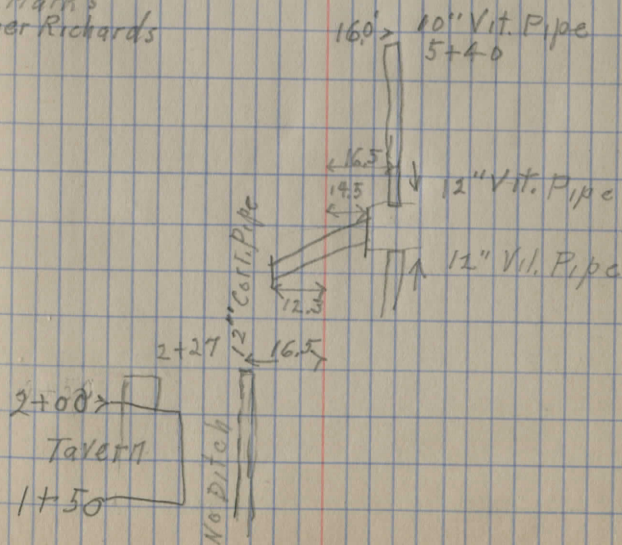 er Richards
16.0'
10" Vit. Pipe
5+40
16.5
14.5
12" Vit. Pipe
12" Corr. Pipe
12" Vit. Pipe
12.3
2+27
16.5
2+00
Tavern
1+50
No Ditch